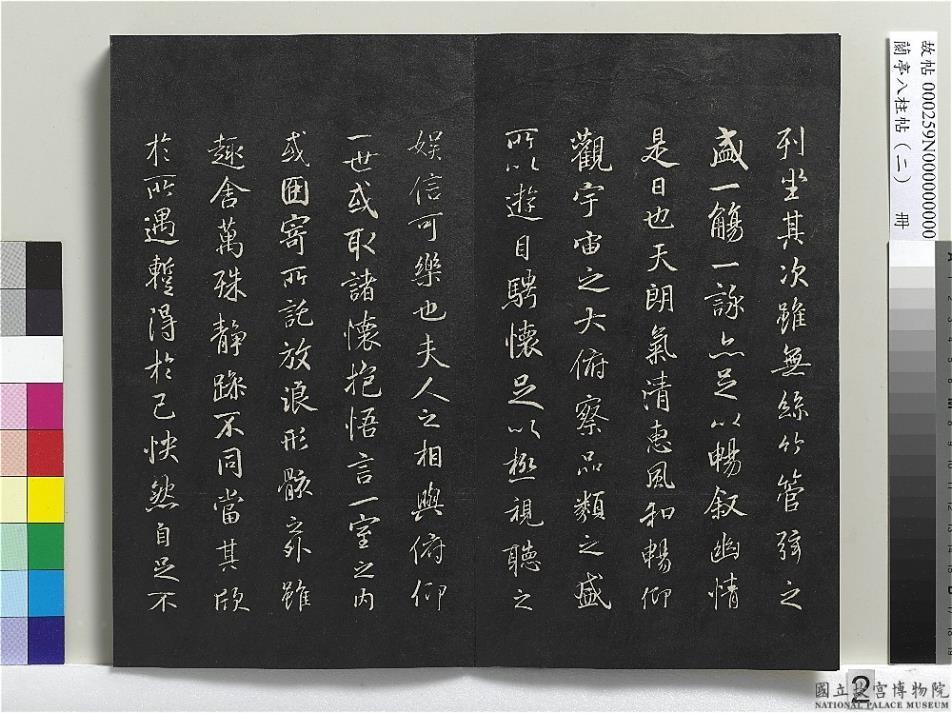 列坐其次雖無絲竹管弦之
盛一觴一詠亦足以暢敘幽情
是日也天朗氣清惠風和暢仰
觀宇宙之大俯察品類之盛
所以遊目騁懷足以極視聽之
娛信可樂也夫人之相與俯仰
一世或取諸懷抱悟言一室之內
或因寄所託放浪形骸之外雖
趣舍萬殊静躁不同當其欣
於所遇暫得於己怏然自足不
故帖 000259N000000000
蘭亭八柱帖(二) 冊
2
國立故宮博物院
NATIONAL PALACE MUSEUM